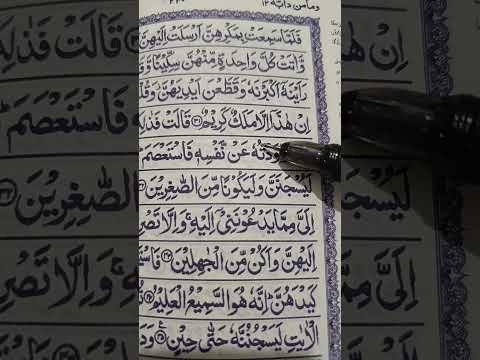 وما من دآبة ١٢
فَلَمَّا سَمِعَتْ بِمَكْرِهِنَّ اَرْسَلَتْ اِلَيْهِنَّ
وَّاٰتَتْ كُلَّ وَاحِدَةٍ مِّنْهُنَّ سِكِّيْنًا وَّ
رَاَيْنَهٗۤ اَكْبَرْنَهٗ وَقَطَّعْنَ اَيْدِيَهُنَّ وَقُلْ
اِنْ هٰذَاۤ اِلَّا مَلَكٌ كَرِيْمٌ ۝۳۱ قَالَتْ فَذٰلِ
وَدْتُّهٗ عَنْ نَّفْسِهٖ فَاسْتَعْصَمَ
لَيُسْجَنَنَّ وَلَيَكُوْنًا مِّنَ الصّٰغِرِيْنَ
اِلَيَّ مِمَّا يَدْعُوْنَنِيْۤ اِلَيْهِ ۚ وَاِلَّا تَصْرِ
اِلَيْهِنَّ وَاَكُنْ مِّنَ الْجٰهِلِيْنَ ۝۳۳ فَاسْ
كَيْدَهُنَّ ؕ اِنَّهٗ هُوَ السَّمِيْعُ الْعَلِيْمُ ۝۳۴
الْاٰيٰتِ لَيَسْجُنُنَّهٗ حَتّٰى حِيْنٍ ۝۳۵ وَدَ